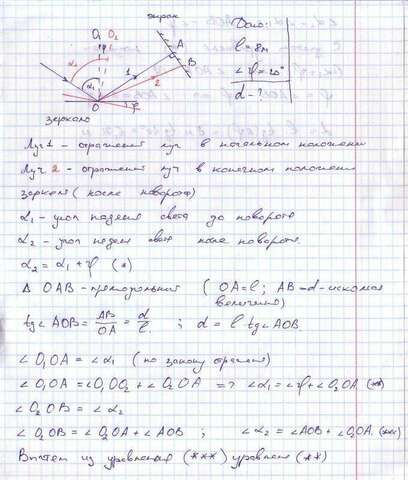 экран
Дано:
O₁ O₂
A
l = 8м
B
∠φ = 20°
α₂
α₁
1
2
d - ?
O
φ
зеркало
Луч 1 - отраженный луч в начальном положении
Луч 2 - отраженный луч в конечном положении
зеркала (после поворота)
α₁ - угол падения света до поворота
α₂ - угол падения света после поворота.
α₂ = α₁ + φ (*)
Δ OAB - прямоугольный (OA = l; AB = d - искомая
величина)
tg∠AOB = AB/OA = d/l ; d = l tg∠AOB
∠O₁OA = ∠α₁ (по закону отражения)
∠O₁OA = ∠O₁OO₂ + ∠O₂OA => ∠α₁ = ∠φ + ∠O₂OA (**)
∠O₂OB = ∠α₂
∠O₂OB = ∠O₂OA + ∠AOB ; ∠α₂ = ∠AOB + ∠O₂OA (***)
Вычтем из уравнения (***) уравнение (**)